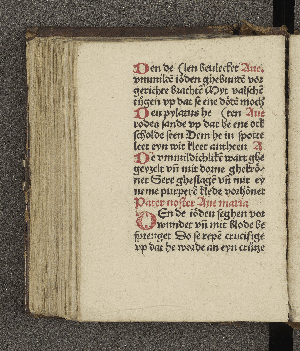 Den de (len beulecket Aue.
vmmilde iöden ghebuntē vor
gerichte brachtē Myt valschē
tügen vp dat se ene dörē moch
Den pylatus he (ten Aue
rodes sande vp dat he ene ock
scholde seen Dem he in spotte
leet eyn wit kleet antheen A
De vmmildichlikē wart ghe
geyzelt vn̄ mit dorne ghekrö
net Sere gheslagē vn̄ mit ey
neme purperē klede vorhönet
Pater noster Aue maria
DEn de iöden seghen vor
wundet vn̄ mit blode be
sprenget Do se repē crucifige
vp dat he worde an eyn crütze